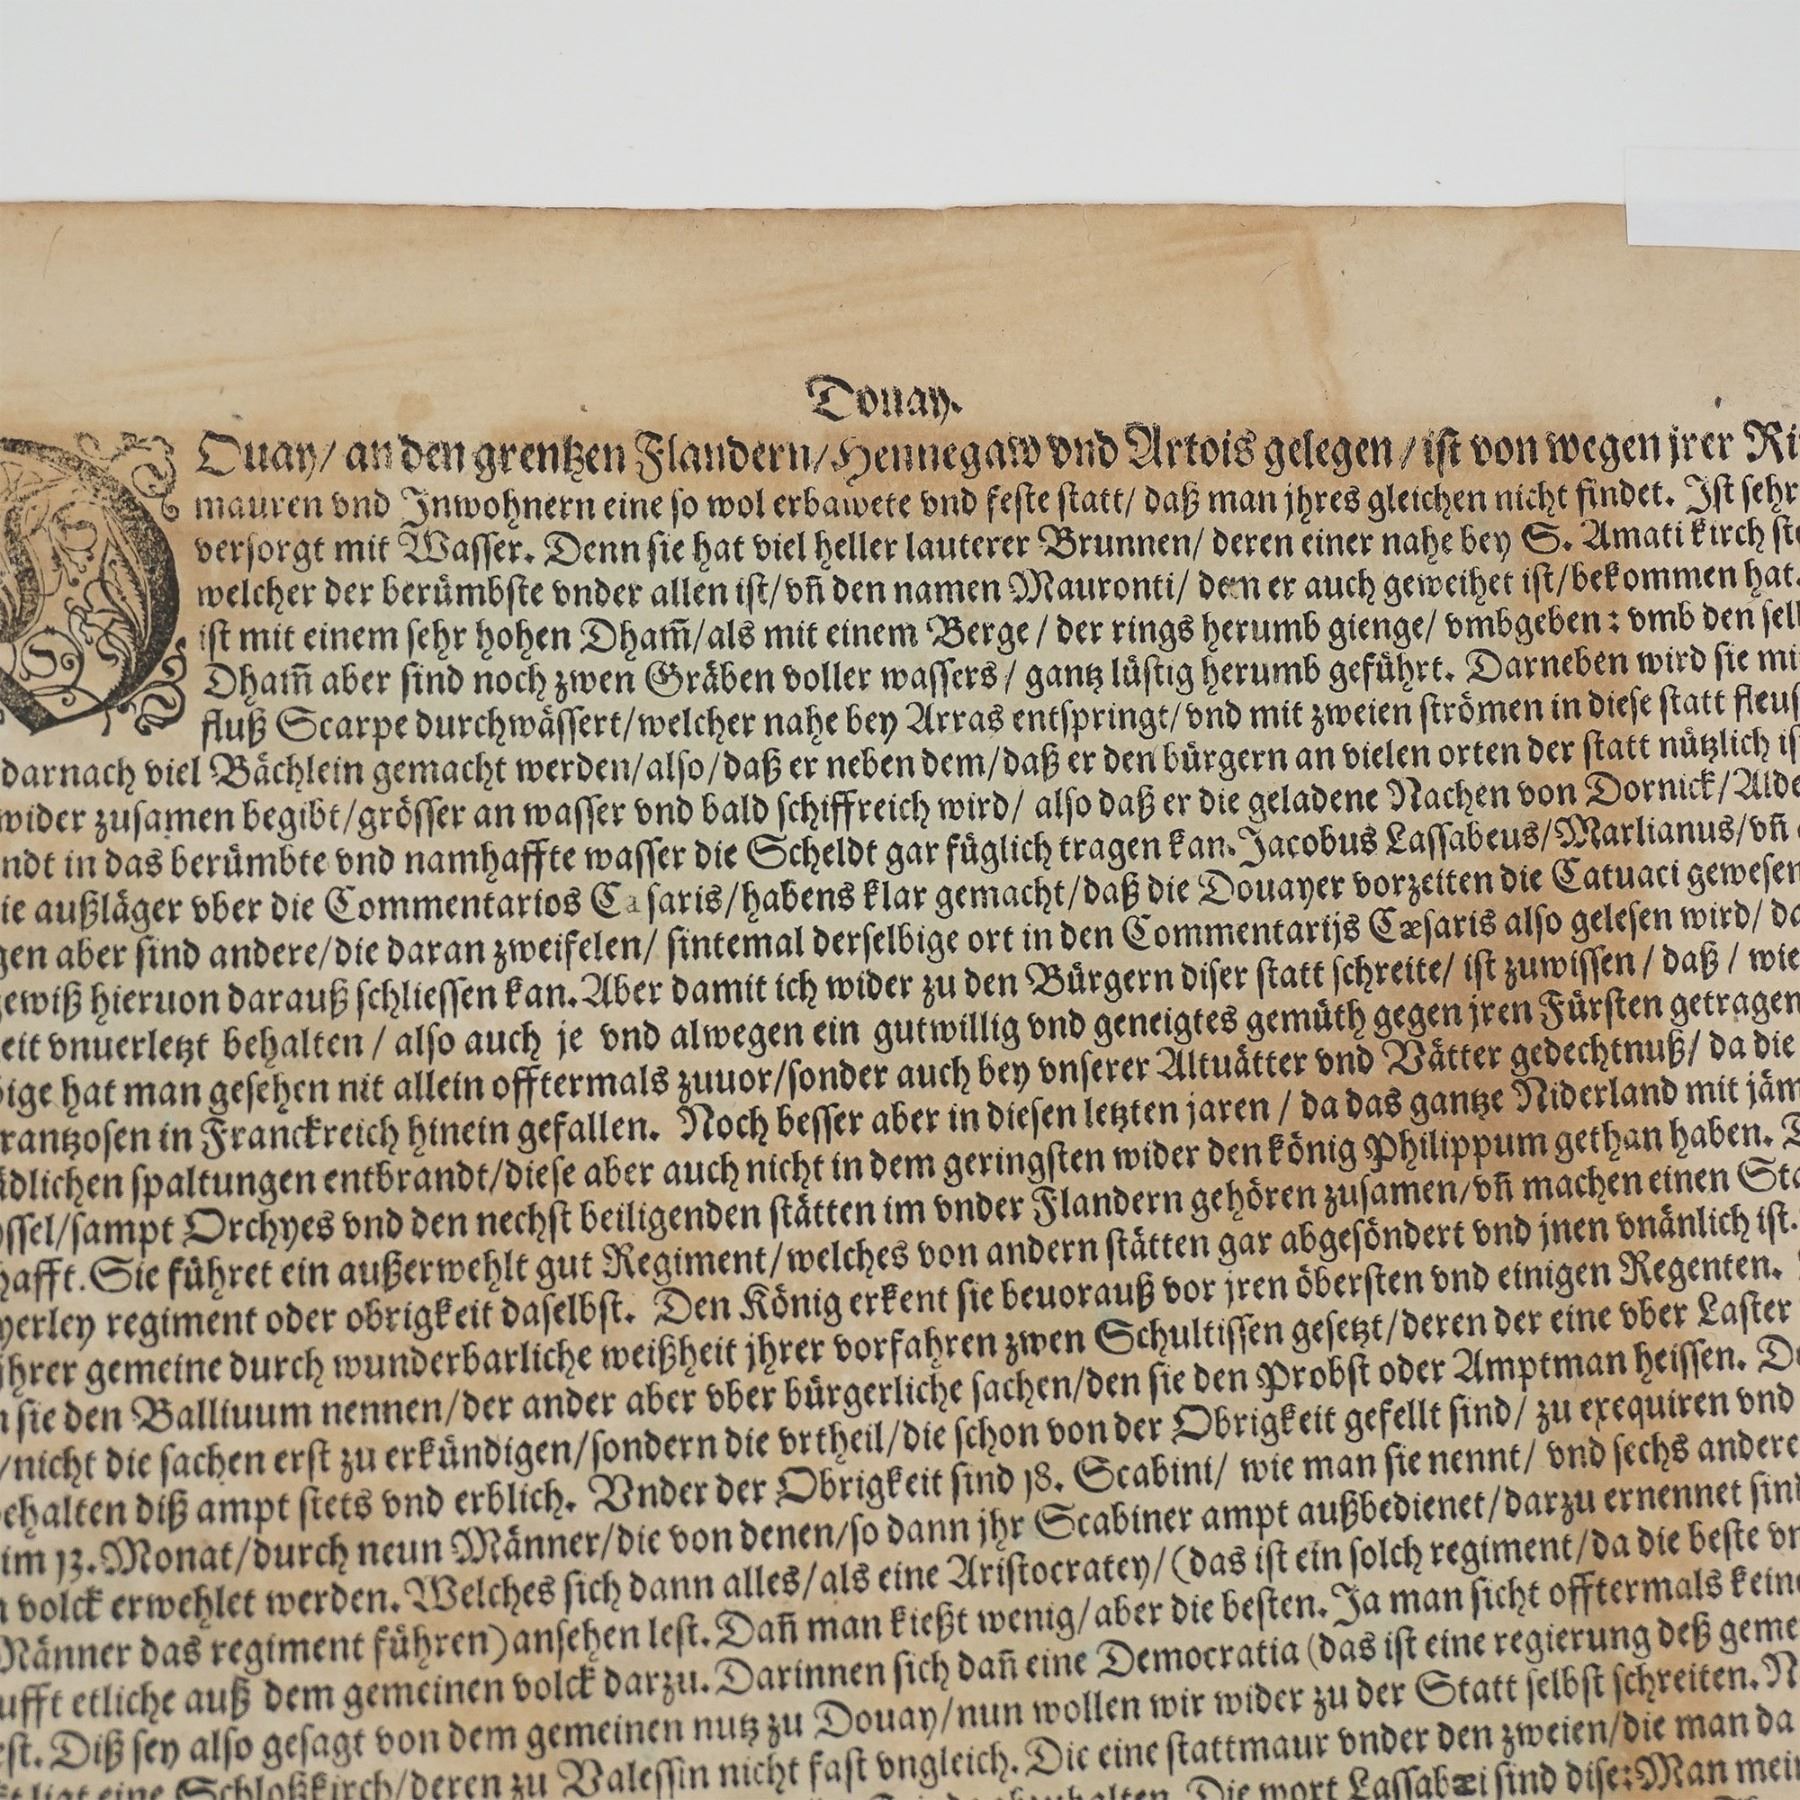 Douay.
DOuay/ an den grentzen Flandern/Hennegaw vnd Artois gelegen/ist von wegen jrer Ri
mauren vnd Inwohnern eine so wol erbawete vnd feste statt/ daß man jhres gleichen nicht findet. Ist sehr
versorgt mit Wasser. Denn sie hat viel heller lauterer Brunnen/ deren einer nahe bey S. Amati kirch ste
welcher der berümbste vnder allen ist/vn̄ den namen Mauronti/ dem er auch geweihet ist/bekommen hat.
ist mit einem sehr hohen Dham̄/als mit einem Berge/ der rings herumb gienge/ vmbgeben: vmb den sel
Dham̄ aber sind noch zwen Gräben voller wassers/ gantz lüstig herumb geführt. Darneben wird sie mi
fluß Scarpe durchwässert/welcher nahe bey Arras entspringt/vnd mit zweien strömen in diese statt fleus
darnach viel Bächlein gemacht werden/also/daß er neben dem/daß er den bürgern an vielen orten der statt nützlich is
wider zusamen begibt/grösser an wasser vnd bald schiffreich wird/ also daß er die geladene Nachen von Dornick/Alde
ndt in das berümbte vnd namhaffte wasser die Scheldt gar füglich tragen kan. Jacobus Lassabeus/Marlianus/vn̄
ie außläger vber die Commentarios Cæsaris/habens klar gemacht/daß die Douayer vorzeiten die Catuaci gewesen
gen aber sind andere/die daran zweifelen/ sintemal derselbige ort in den Commentarijs Cæsaris also gelesen wird/ da
gewiß hieruon darauß schliessen kan. Aber damit ich wider zu den Bürgern diser statt schreite/ ist zuwissen/ daß/ wie
eit vnuerletzt behalten/ also auch je vnd alwegen ein gutwillig vnd geneigtes gemüth gegen jren Fürsten getragen
bige hat man gesehen nit allein offtermals zuuor/sonder auch bey vnserer Altuätter vnd Vätter gedechtnuß/ da die
rantzosen in Franckreich hinein gefallen. Noch besser aber in diesen letzten jaren/ da das gantze Niderland mit jäm
ädlichen spaltungen entbrandt/diese aber auch nicht in dem geringsten wider den könig Philippum gethan haben.
ssel/sampt Orchyes vnd den nechst beiligenden stätten im vnder Flandern gehören zusamen/vn̄ machen einen Sta
hafft. Sie führet ein außerwehlt gut Regiment/welches von andern stätten gar abgesöndert vnd jnen vnänlich ist.
yerley regiment oder obrigkeit daselbst. Den König erkent sie beuorauß vor jren öbersten vnd einigen Regenten.
jhrer gemeine durch wunderbarliche weißheit jhrer vorfahren zwen Schultissen gesetzt/deren der eine vber Laster
n sie den Balliuum nennen/der ander aber vber bürgerliche sachen/den sie den Probst oder Amptman heissen. De
/nicht die sachen erst zu erkündigen/sondern die vrtheil/die schon von der Obrigkeit gefellt sind/ zu exequiren vnd
ehalten diß ampt stets vnd erblich. Vnder der Obrigkeit sind 18. Scabini/ wie man sie nennt/ vnd sechs andere
im 13. Monat/durch neun Männer/die von denen/so dann jhr Scabiner ampt außbedienet/darzu ernennet sind
n volck erwehlet werden. Welches sich dann alles/als eine Aristocratey/(das ist ein solch regiment/da die beste vn
Männer das regiment führen) ansehen lest. Dan̄ man kießt wenig/aber die besten. Ja man sicht offtermals kein
ufft etliche auß dem gemeinen volck darzu. Darinnen sich dan̄ eine Democratia (das ist eine regierung deß geme
est. Diß sey also gesagt von dem gemeinen nutz zu Douay/nun wollen wir wider zu der Statt selbst schreiten. N
ligt eine Schloßkirch/deren zu Valessin nicht fast vngleich. Die eine stattmaur vnder den zweien/die man da
Die wort Lassabæi sind dise: Man mein